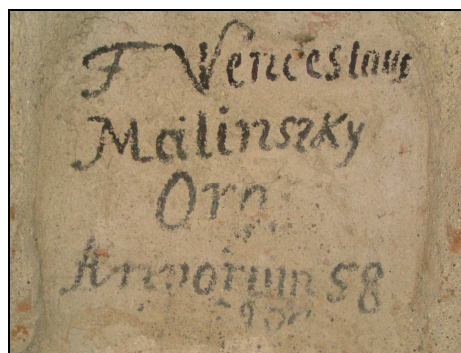 F Venceslaus
Malinszky
Orn
Annorum 58